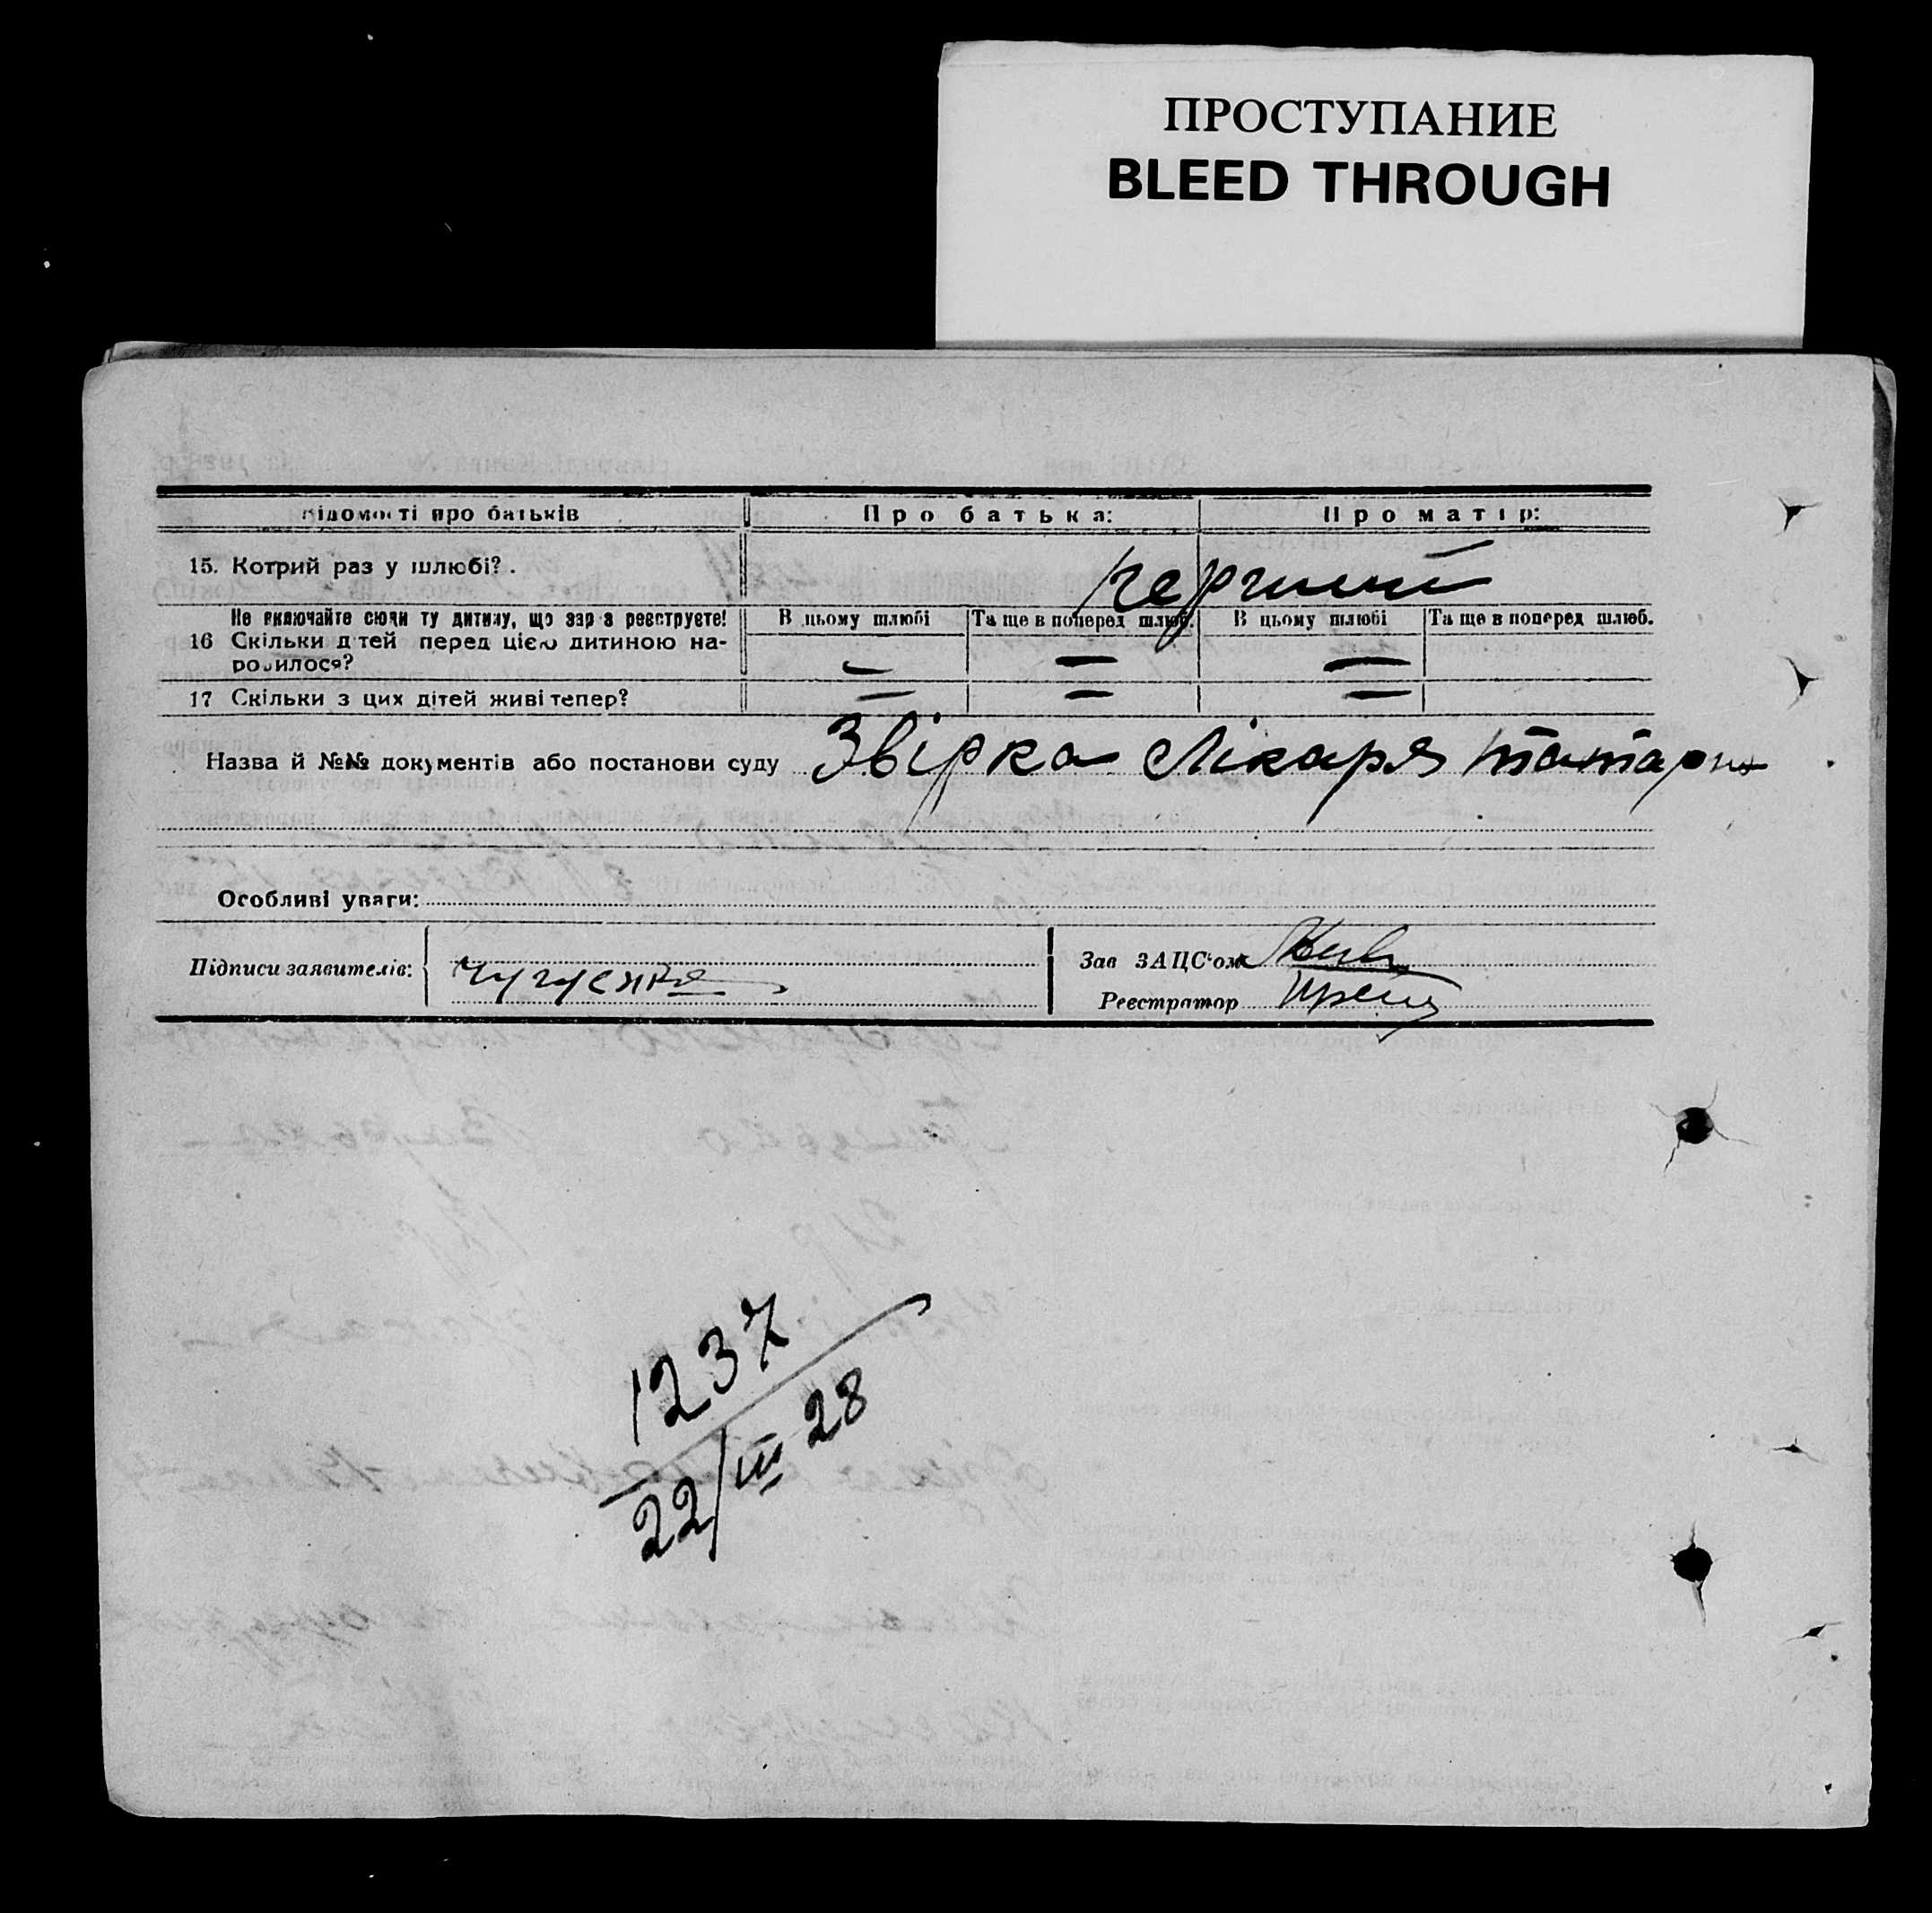 ПРОСТУПАНИЕ
BLEED THROUGH
Відомості про батьків Про батька: Про матір:
15. Котрий раз у шлюбі? . перший
Не включайте сюди ту дитину, що зараз реєструєте! В цьому шлюбі Та ще в поперед шлюб. В цьому шлюбі Та ще в поперед шлюб.
16 Скільки дітей перед цією дитиною на-
родилося? — — —
17 Скільки з цих дітей живі тепер? — — —
Назва й №№ документів або постанови суду Звірка Лікаря
Особливі уваги:
Підписи заявителів:
Зав ЗАЦС'ом
Реєстратор
1237
22/III 28